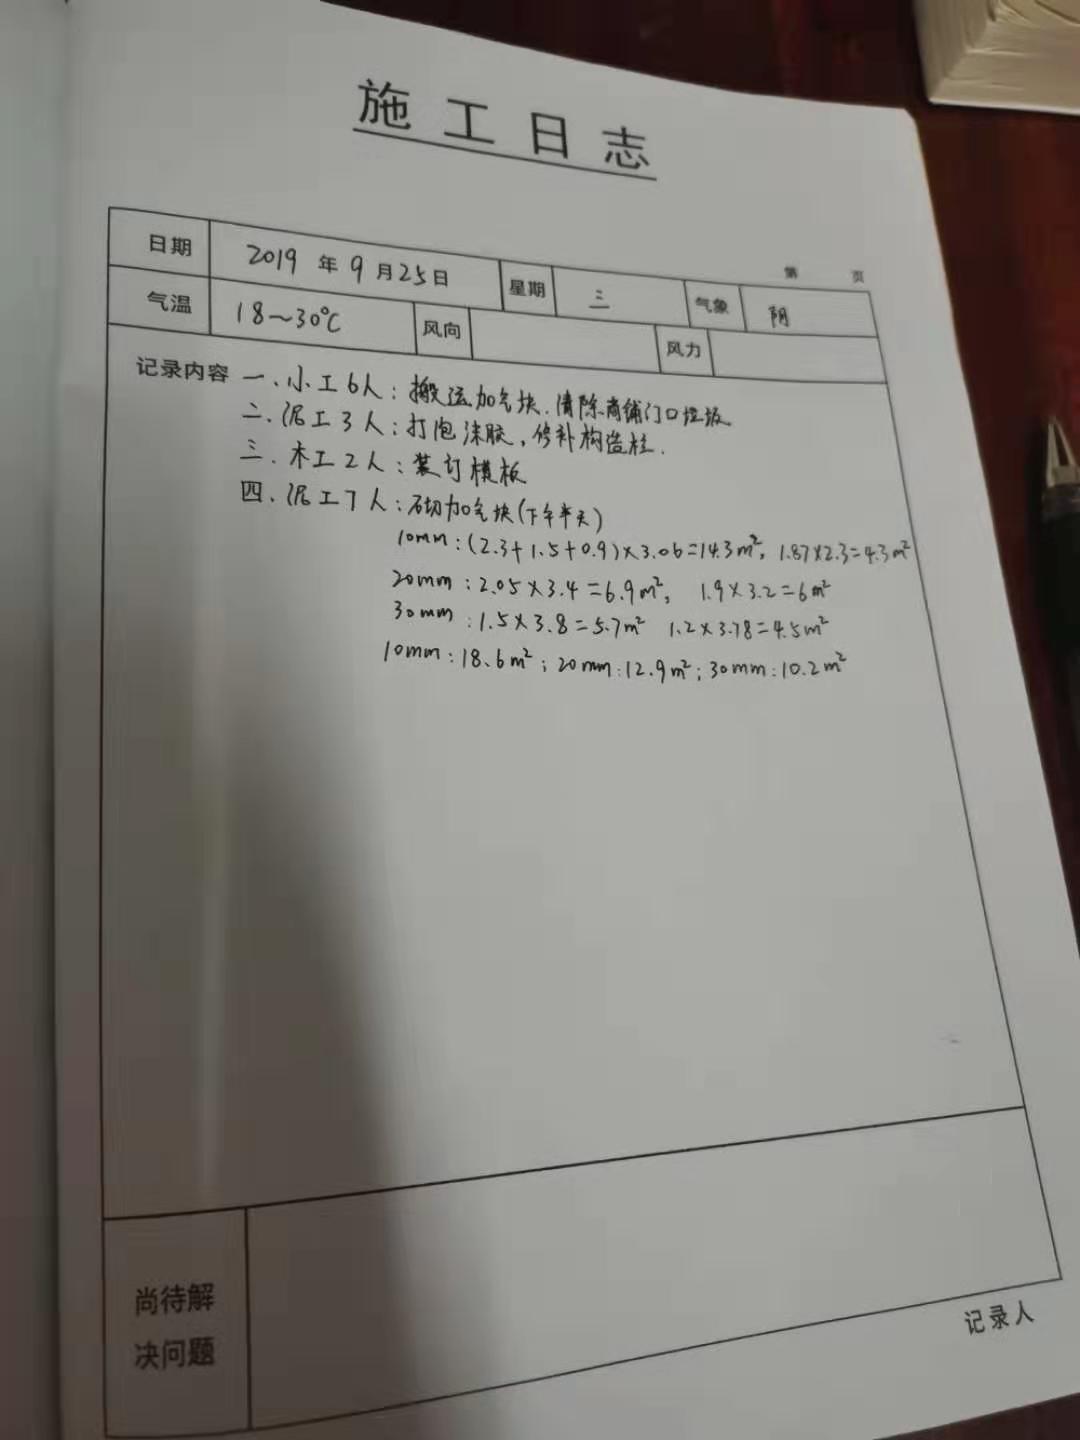 施工日志
第 页
日期 2019年9月25日 星期 三 气象 阴
气温 18~30℃ 风向 风力
记录内容 一、小工6人:搬运加气块、清除商铺门口垃圾
二、泥工3人:打泡沫胶,修补构造柱.
三、木工2人:装订模板
四、泥工7人:砌加气块(下午半天)
10mm:(2.3+1.5+0.9)×3.06=14.3m², 1.87×2.3=4.3m²
20mm:2.05×3.4=6.9m², 1.9×3.2=6m²
30mm:1.5×3.8=5.7m² 1.2×3.78=4.5m²
10mm:18.6m²;20mm:12.9m²;30mm:10.2m²
尚待解
决问题
记录人